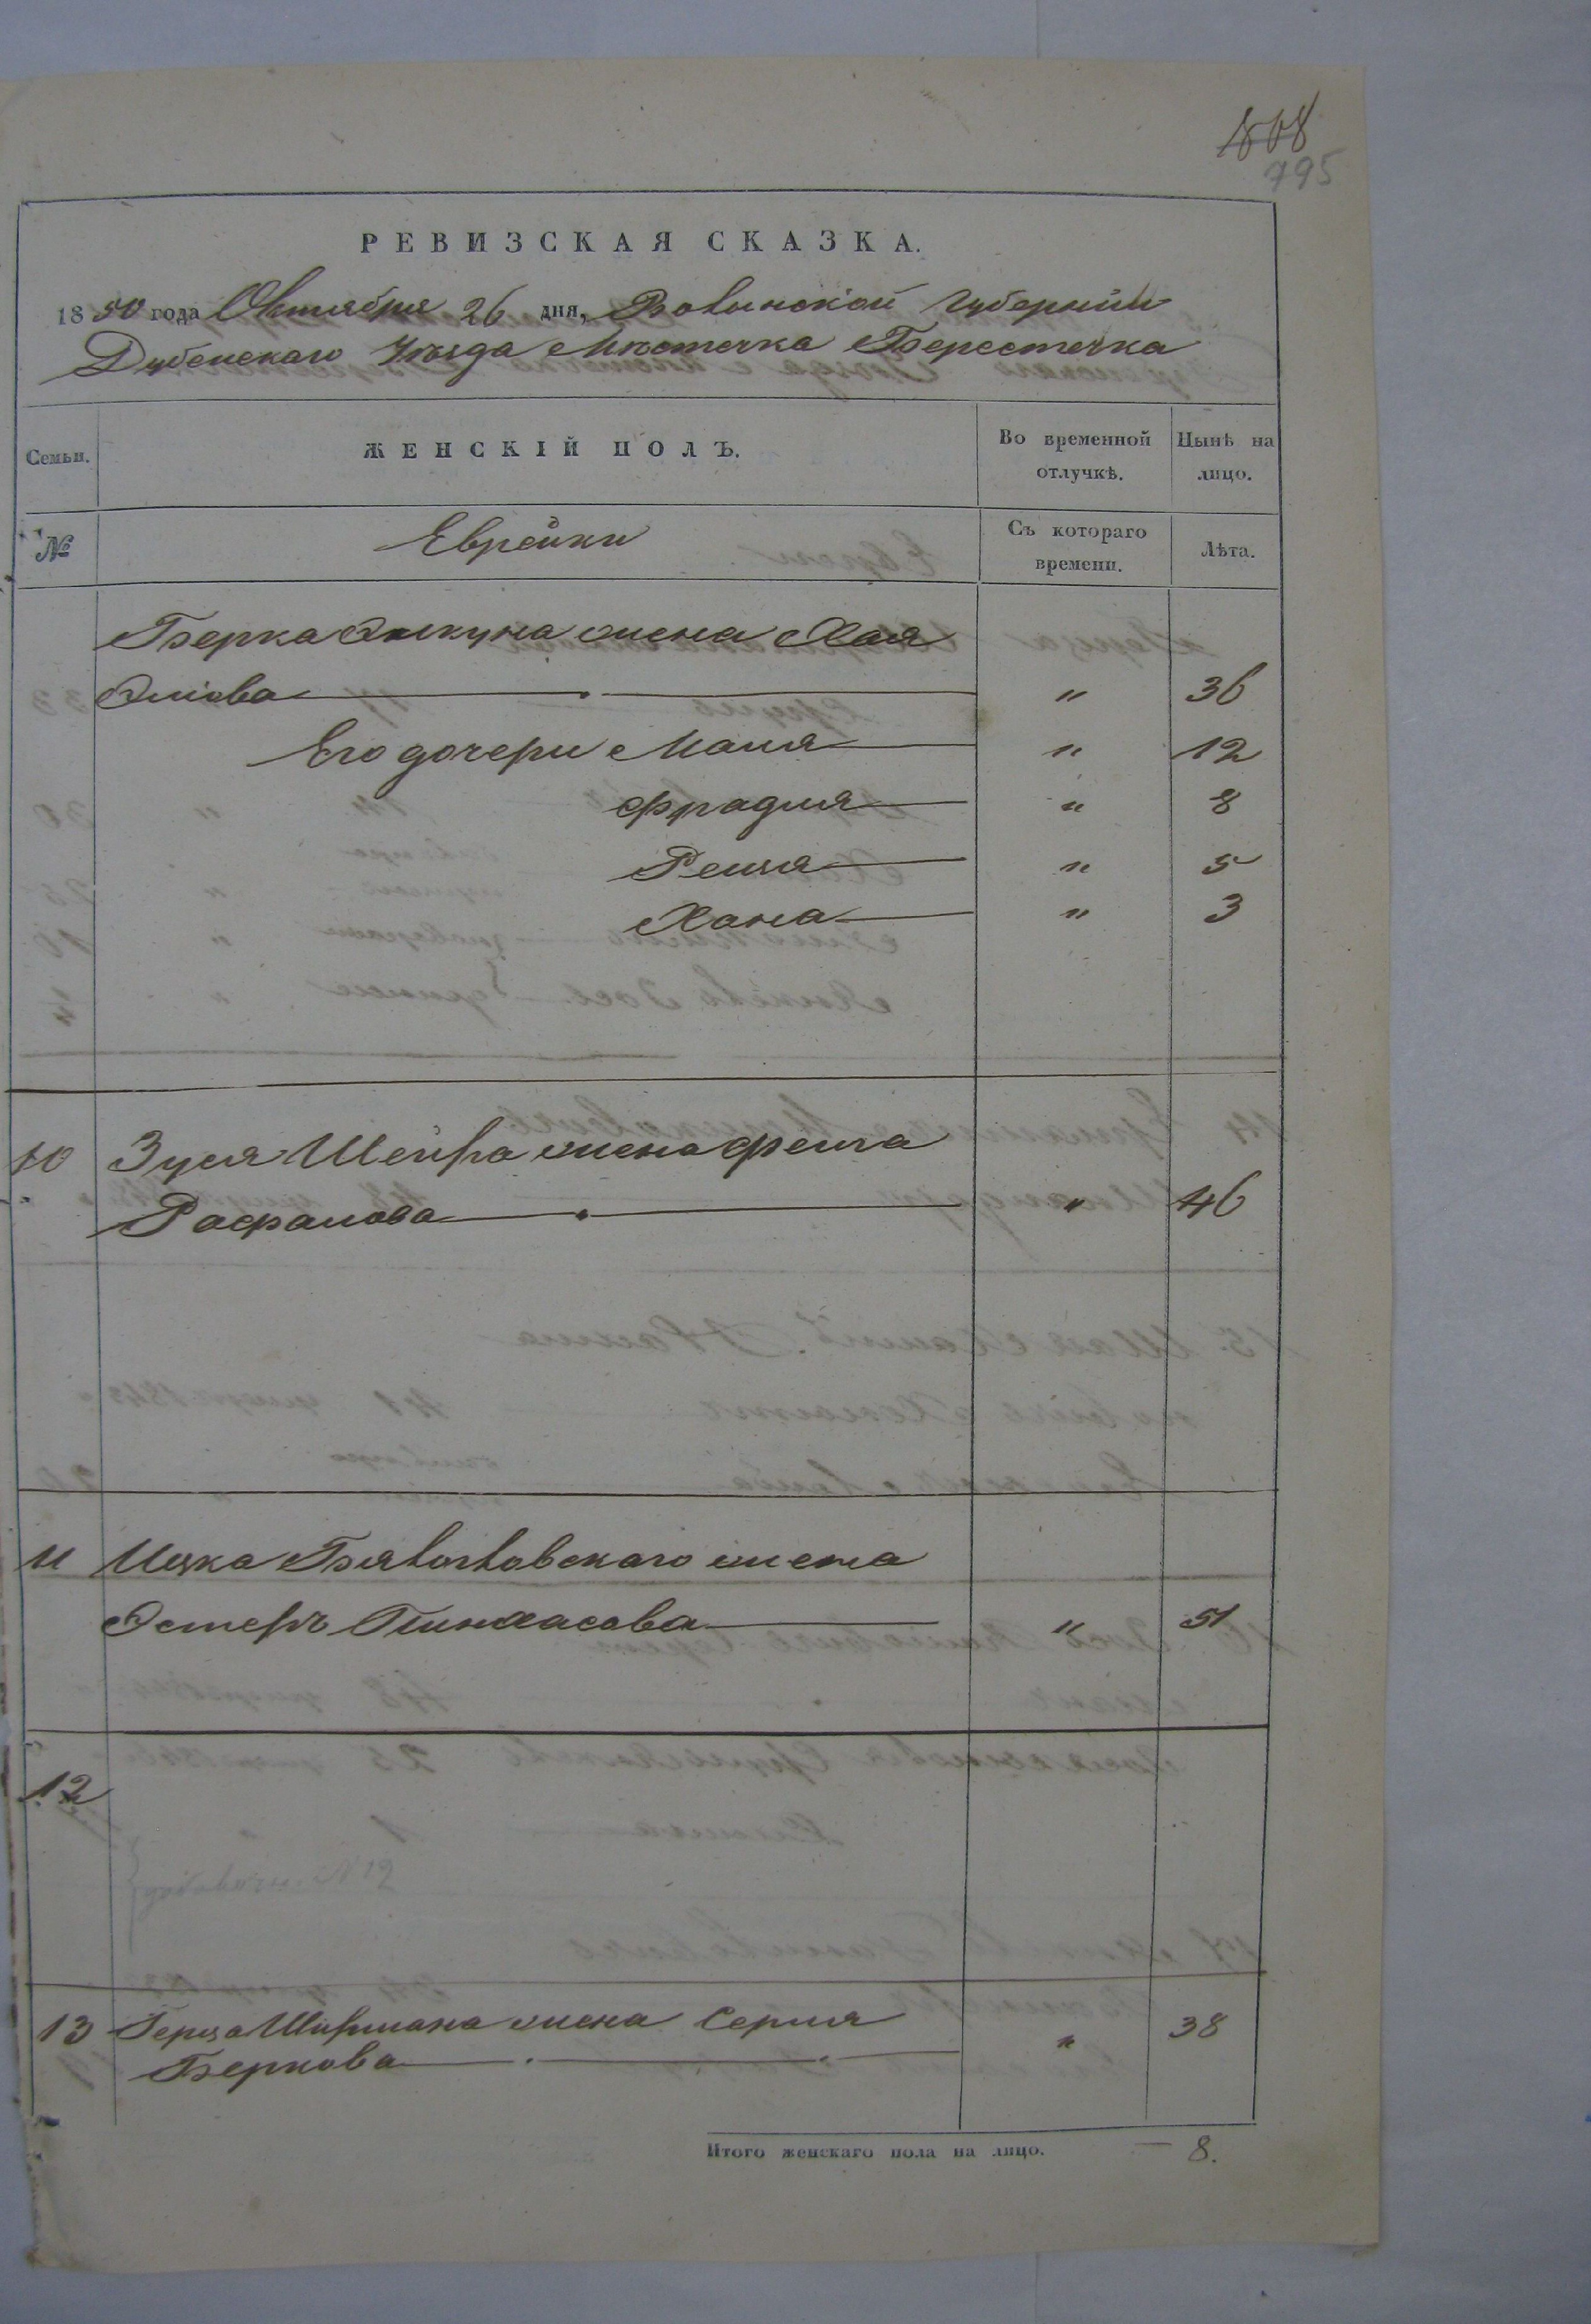 808
795
РЕВИЗСКАЯ СКАЗКА.
1850 года Октября 26 дня, Волынской Губерніи
Дубенскаго Уѣзда Мѣстечка Берестечка
Семьи.
ЖЕНСКІЙ ПОЛЪ.
Во временной отлучкѣ.
Нынѣ на лицо.
№
Еврейки
Съ котораго времени.
Лѣта.
Берка жена Хая
" 36
Его дочери Маля " 12
Фрадля " 8
Рейза " 5
Хана " 3
10 Зуся Шейра жена Фейга
Рафалова " 46
11 Ицка жена
Эстеръ Пинхасова " 51
12
13 Герша Ширмана жена Серля " 38
Беркова
Итого женскаго пола на лицо. — 8.